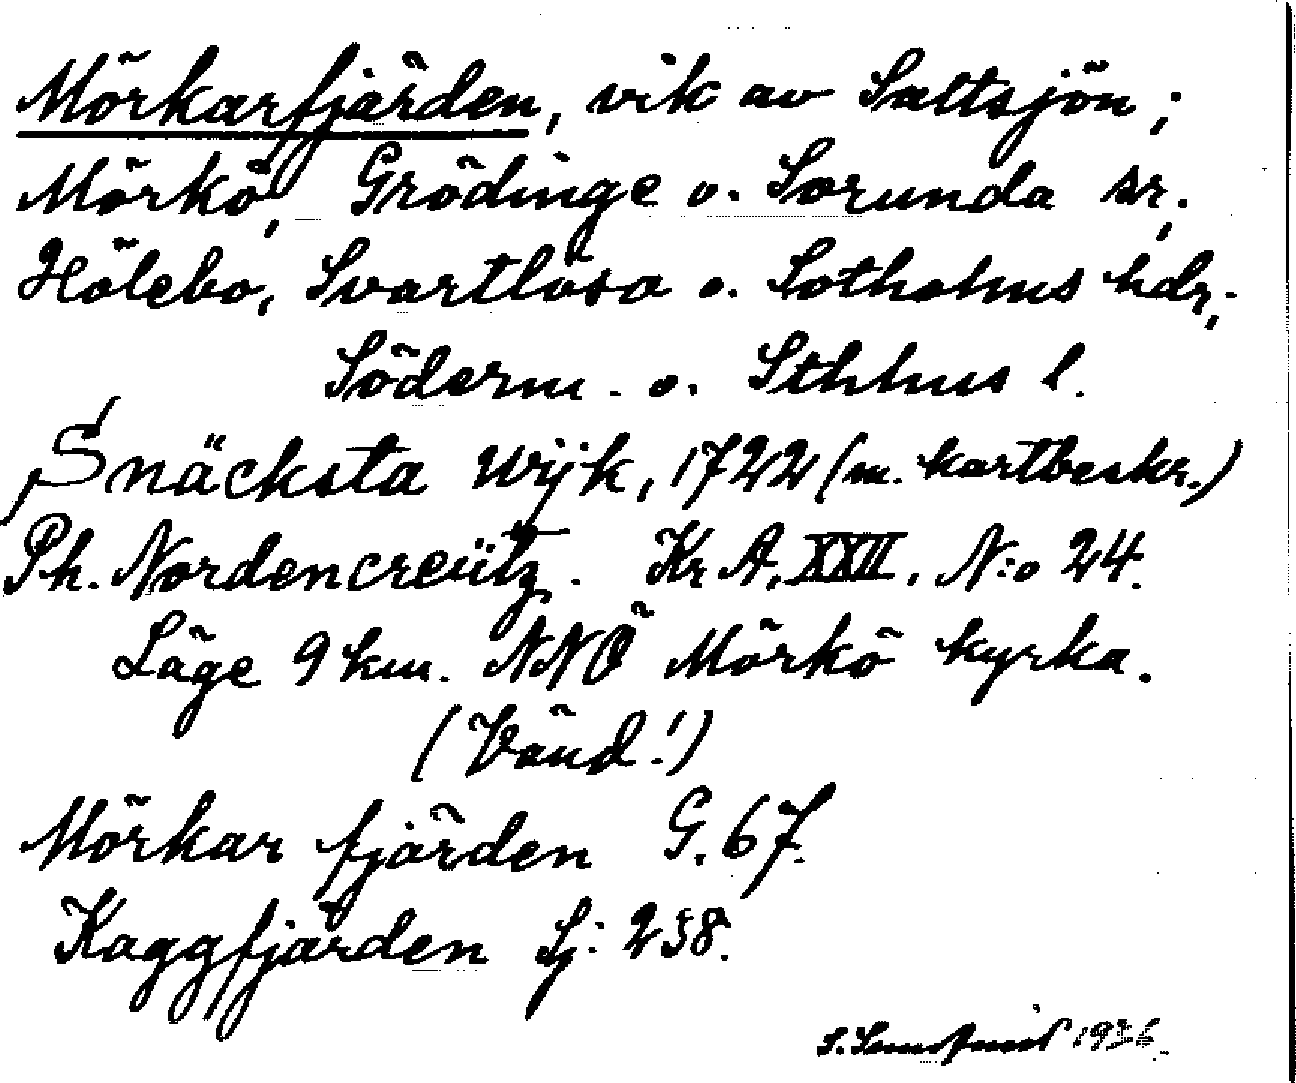 Mörkarfjärden, vik av Saltsjön;
Mörkö, Grödinge o. Sorunda sr,
Hölebo, Svartlösa o. Sotholms hdr,
Söderm. o. Sthlms l.
Snäcksta Wijk, 1722 (m. kartbeskr.)
Ph. Nordencreütz. Kr A. XXII. N:o 24.
Läge 9 km. NNÖ Mörkö kyrka.
(Vänd!)
Mörkar fjärden G. 67.
Kaggfjärden Sj: 238.
S. 1936.